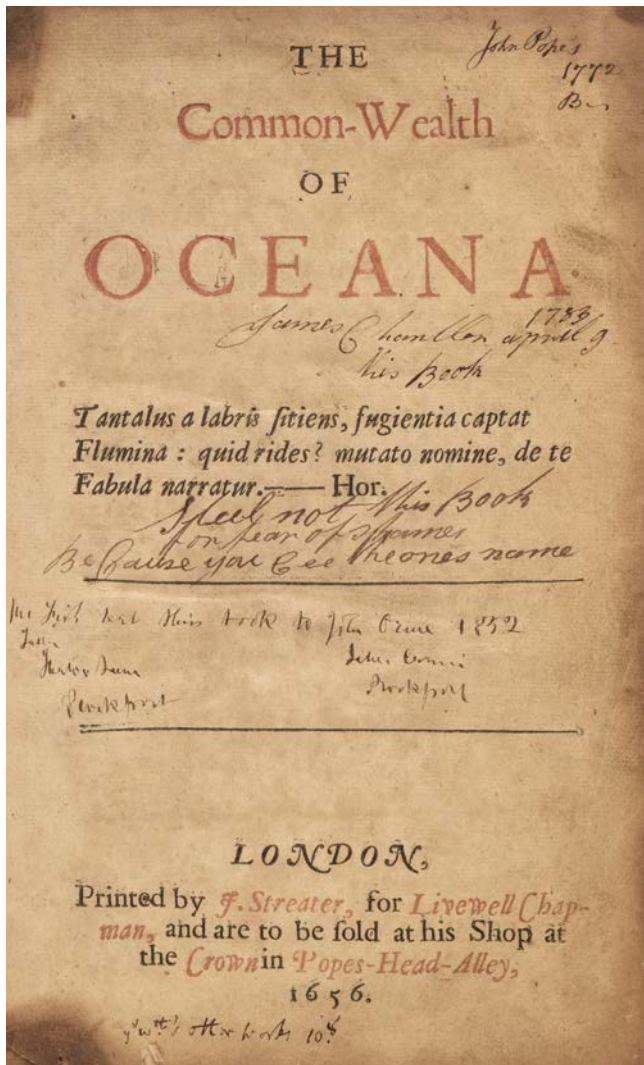 THE
John Pope's
1772
Common-Wealth
OF
OCEANA
1783
James Chamllon april 9
his Book
Tantalus a labris ſitiens, fugientia captat
Flumina : quid rides? mutato nomine, de te
Fabula narratur.—— Hor.
Steel not this Book
for fear of Shames
Because you See the ones name
this book to John 1852
Brockport
LONDON,
Printed by J. Streater, for Livewell Chap-
man, and are to be ſold at his Shop at
the Crown in Popes-Head-Alley,
1656.